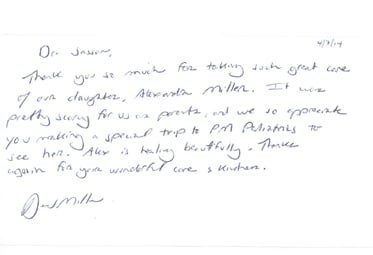 4/7/14
Dr. Sasson,
Thank you so much for taking such great care
of our daughter, Alexandra Miller. It was
pretty scary for us as parents, and we so appreciate
you making a special trip to PM Pediatrics to
see her. Alex is healing beautifully. Thanks
again for your wonderful care & kindness.
Miller